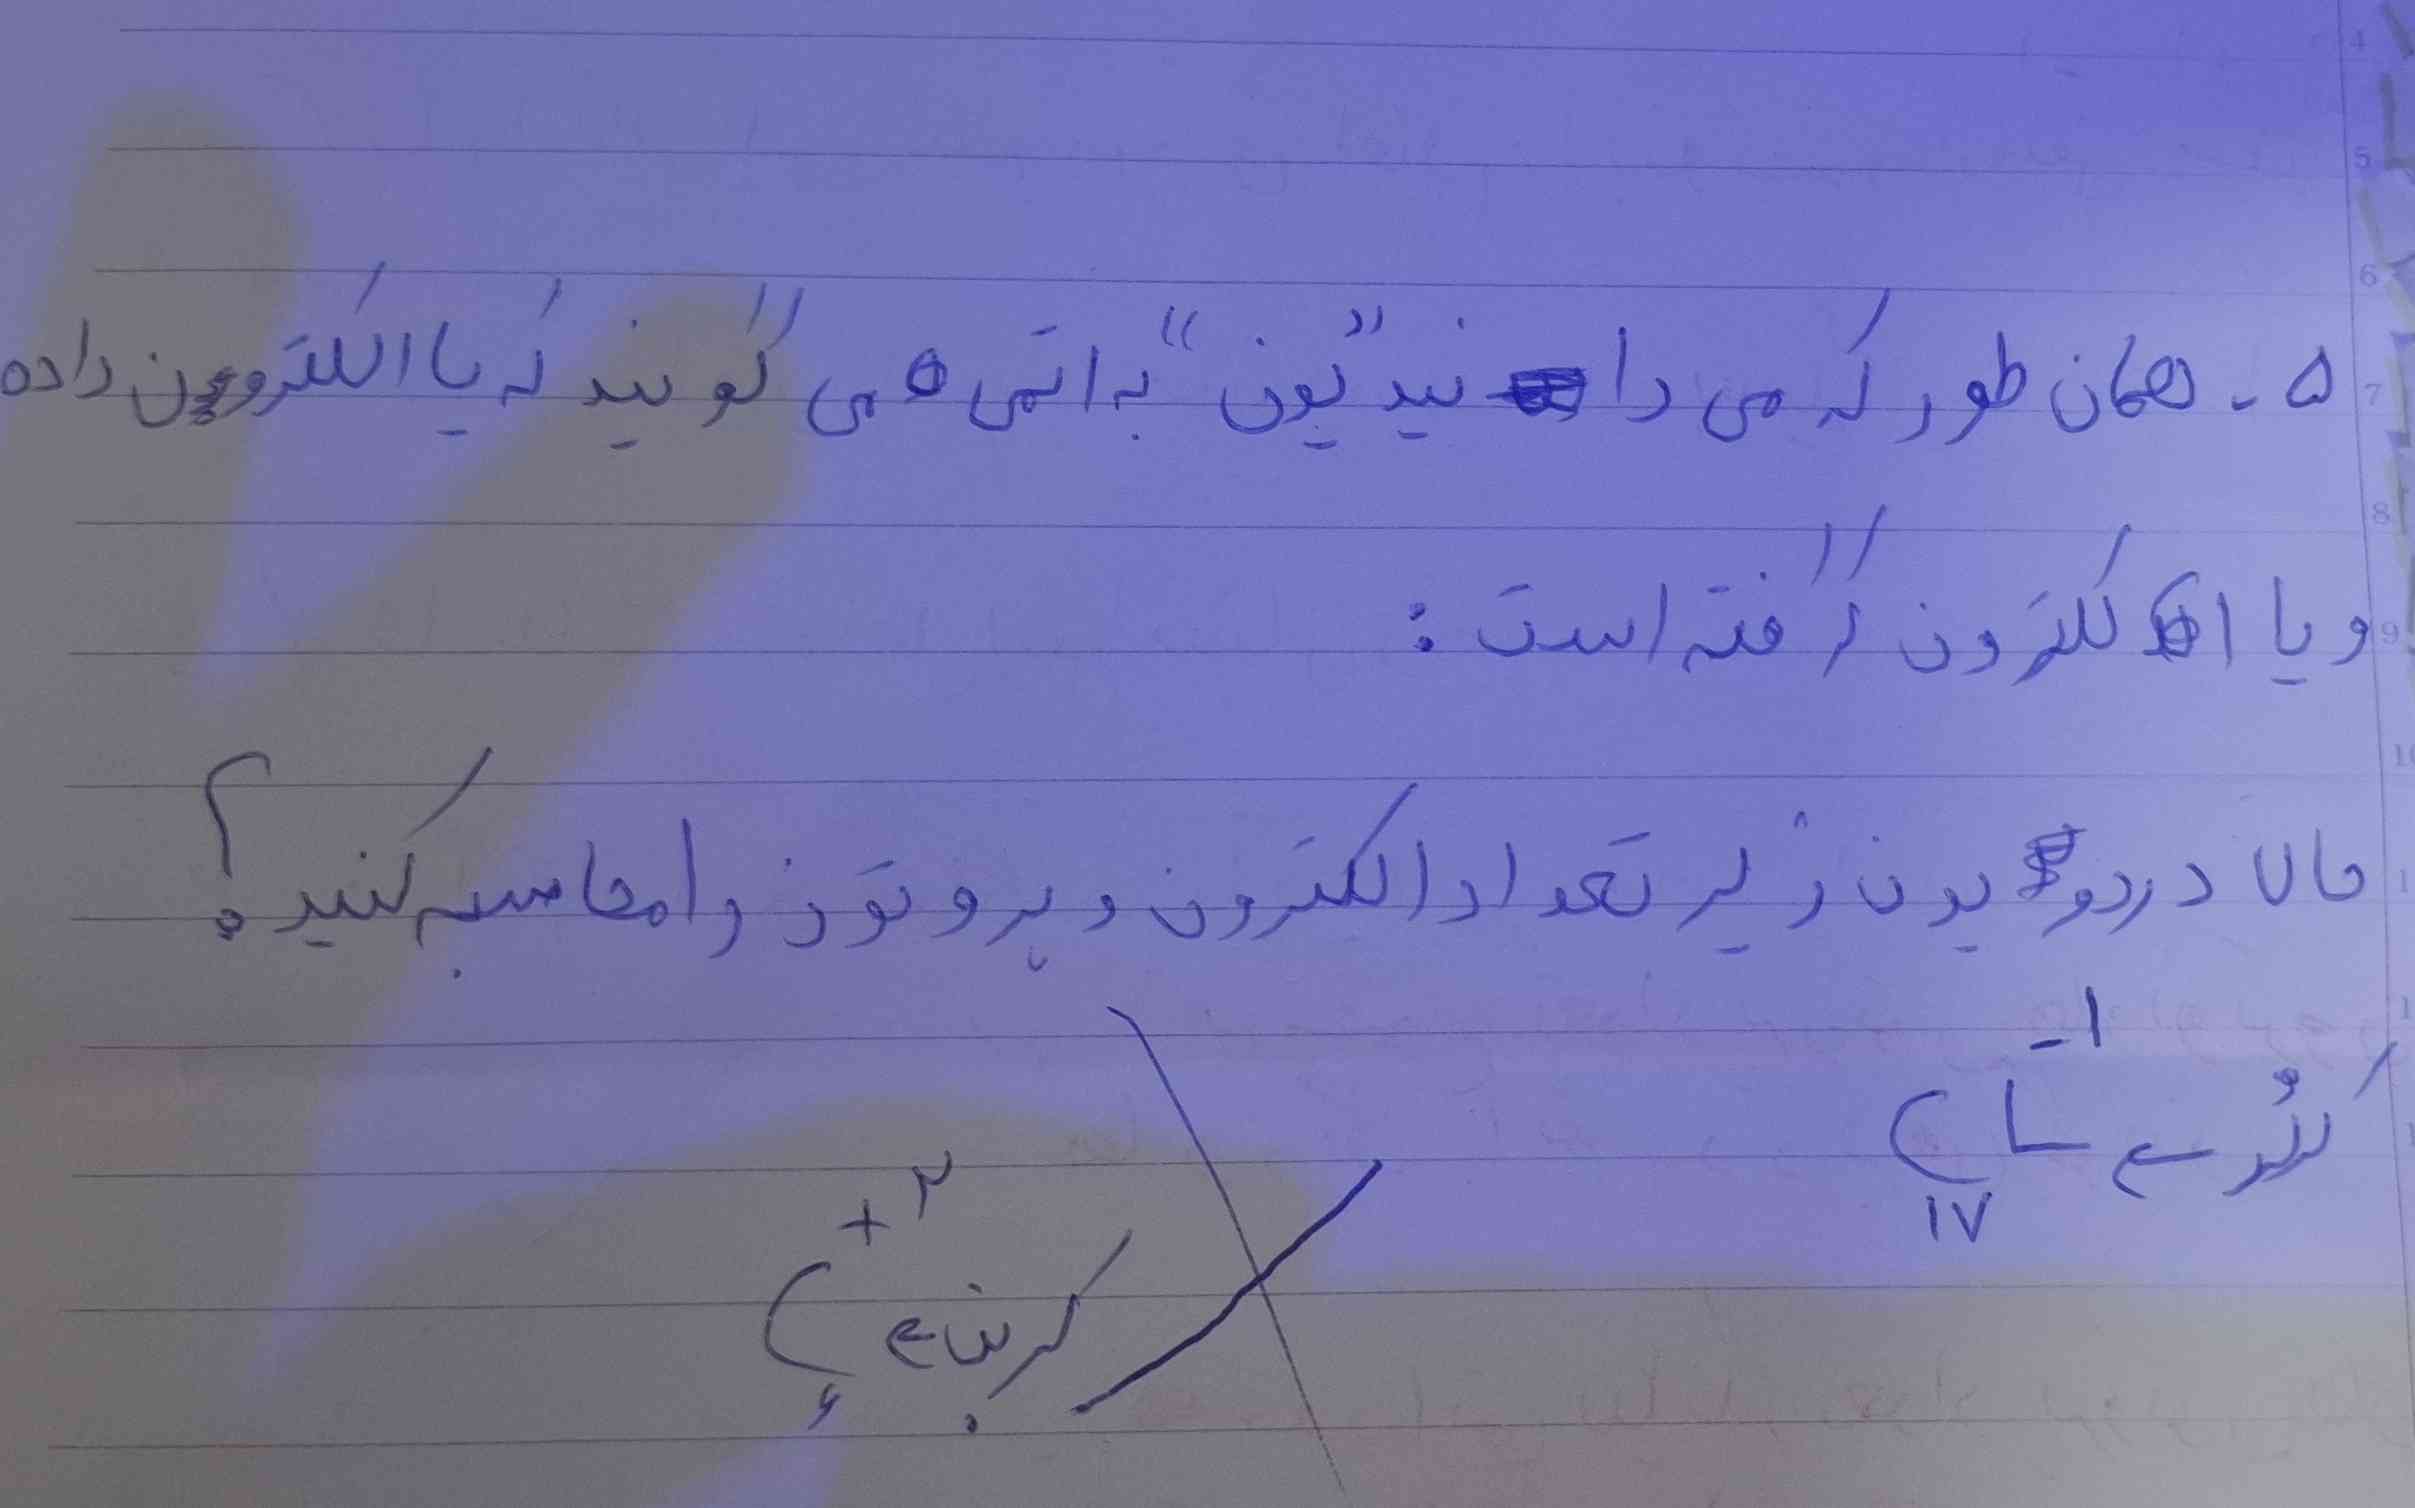 ۵ - همان طور که می دا نید "یون" به اتمی می گویند که یا الکترون داده
و یا الکترون گرفته است :
حالا در دو یون زیر تعداد الکترون و پروتون را محاسبه کنید ؟
-۱
کلر
۱۷
+۲
کربن
۶